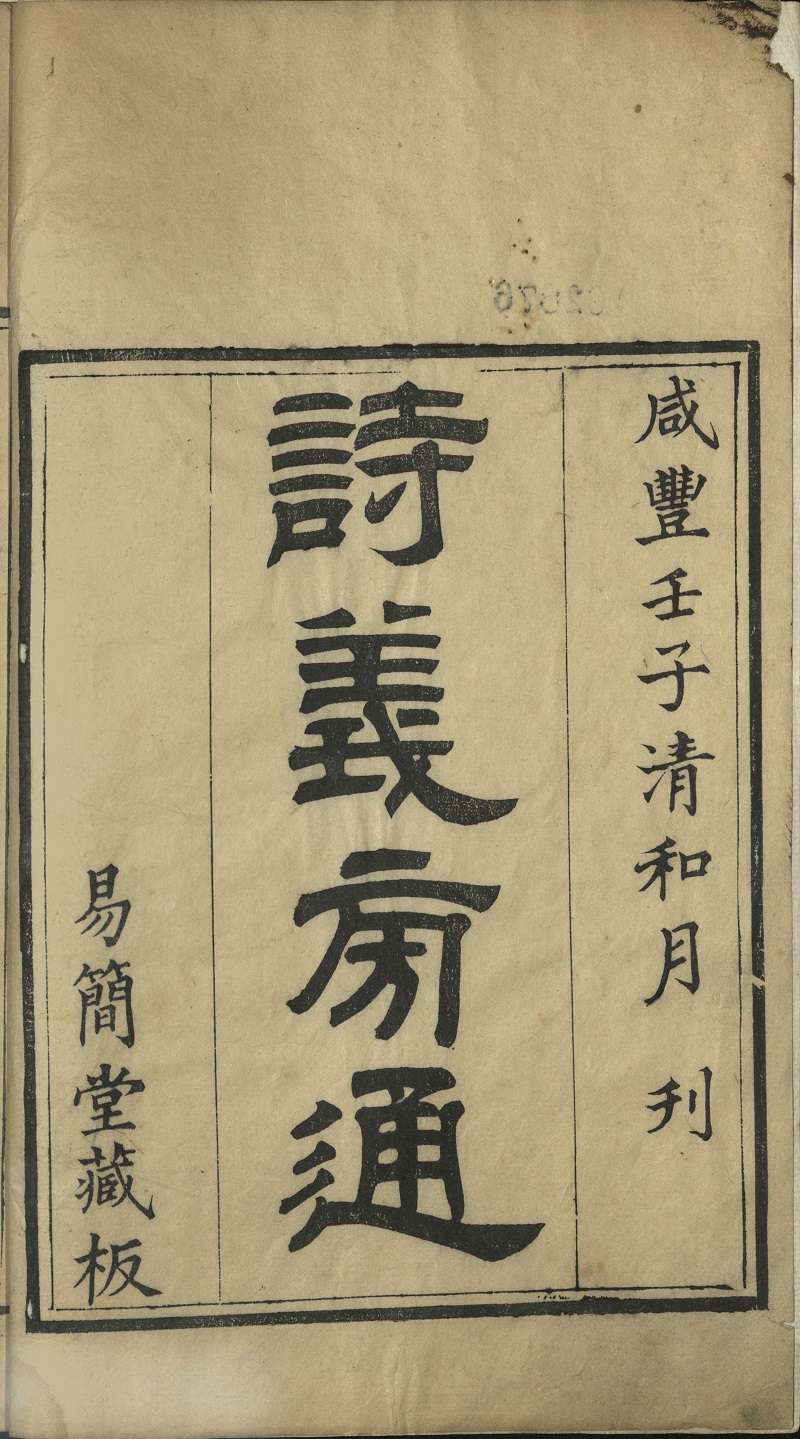 咸豐壬子清和月刊
詩義旁通
易簡堂藏板